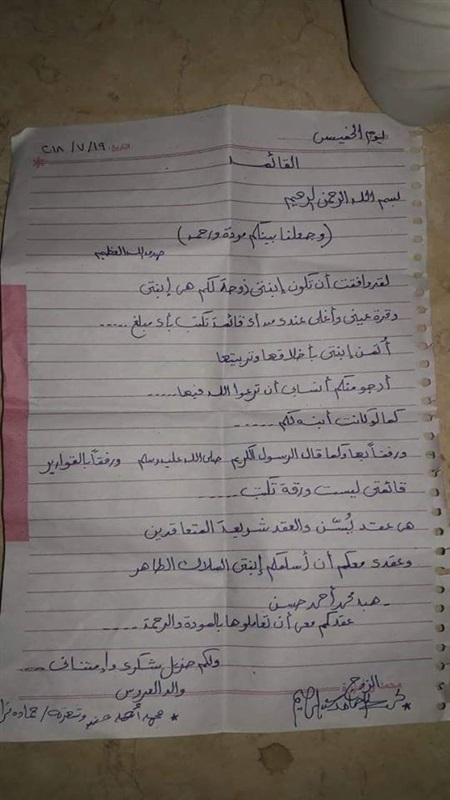 ليوم الخميس
التاريخ ٢١٨/٧/١٩
القائمـــة
بسم الله الرحمن الرحيم
(وجعلنا بينكم مودة ورحمه)
صدق الله العظيم
لقد وافقت أن تكون إبنتى زوجة لكم هى إبنتى
وقرة عينى وأغلى عندى من أى قائمة تكتب بأى مبلغ .....
أثمن إبنتى بأخلاقها وتربيتها
أرجو منكم أنسابى أن ترعوا الله فيها .....
كما لو كانت أبنه لكم .....
ورفقاً بها وكما قال الرسول الكريم صلى الله عليه وسلم ورفقاً بالقوارير
قائمتى ليست ورقة تكتب .....
هى عقد يُبين والعقد شريعة المتعاقدين
وعقدى معكم أن أسلمكم إبنتى الملاك الطاهر
- هبه محمد أحمد حسن
عقدكم معى أن تعاملوها بالمودة والرحمة .....
ولكم جزيل شكرى وإمتنانى .....
والد العروس
الزوج
محمد أحمد حسن وشهرته / حماده